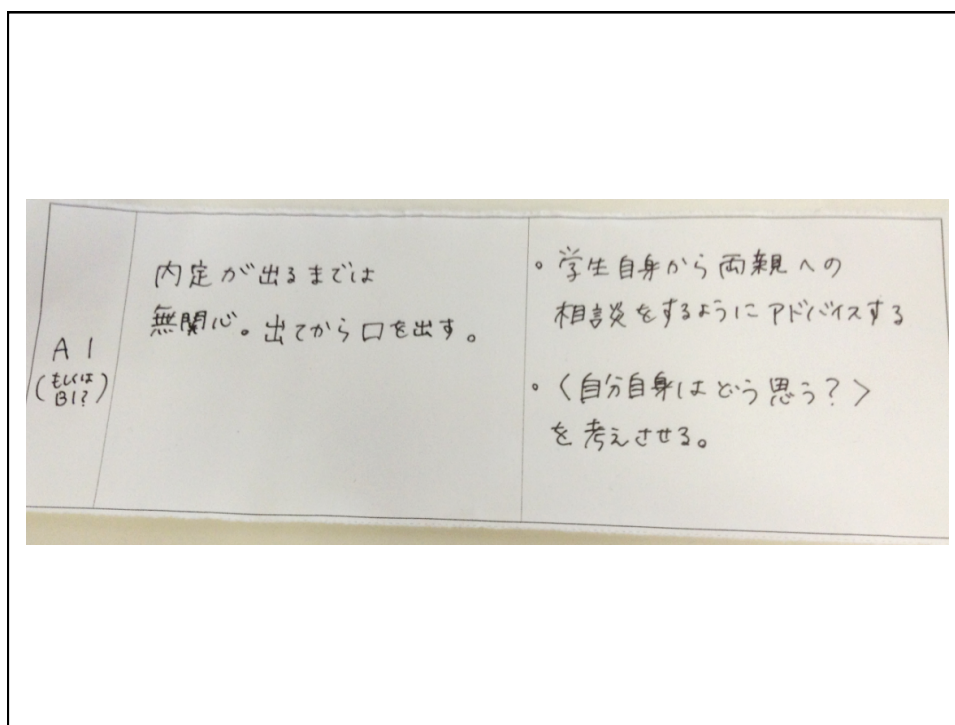 A1
(もしくは
B1?)
内定が出るまでは
無関心。出てから口を出す。
。学生自身から両親への
相談をするようにアドバイスする
・〈自分自身はどう思う?〉
を考えさせる。